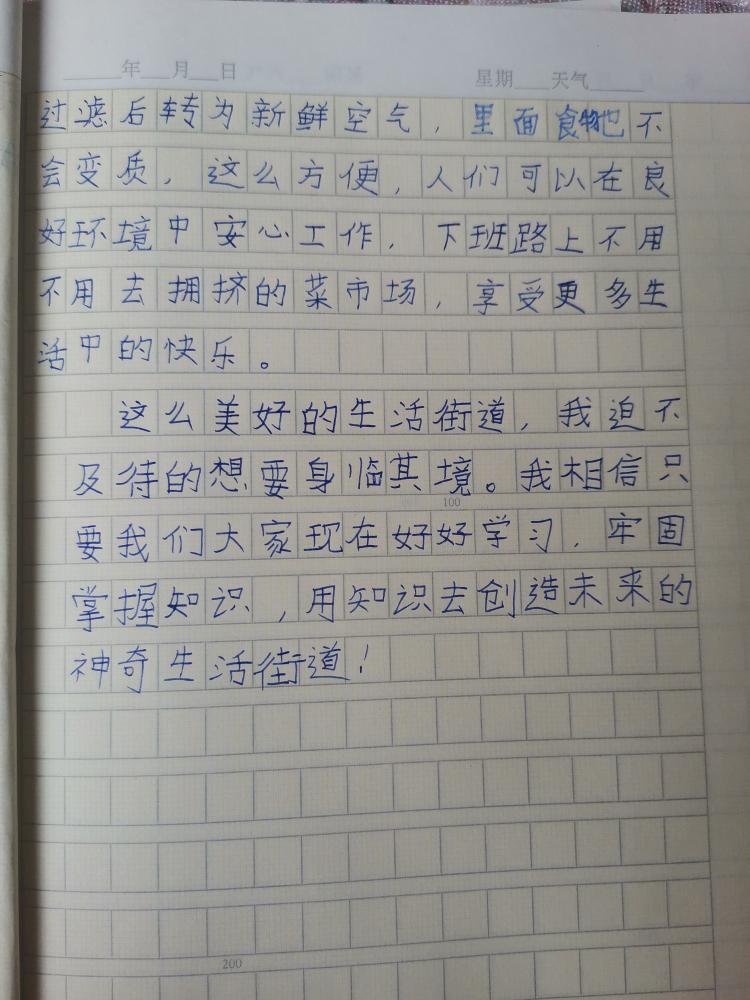 年 月 日 星期 天气
过滤后转为新鲜空气，里面食物也不
会变质，这么方便，人们可以在良
好环境中安心工作，下班路上不用
不用去拥挤的菜市场，享受更多生
活中的快乐。
这么美好的生活街道，我迫不
及待的想要身临其境。我相信只
100
要我们大家现在好好学习，牢固
掌握知识，用知识去创造未来的
神奇生活街道！
200